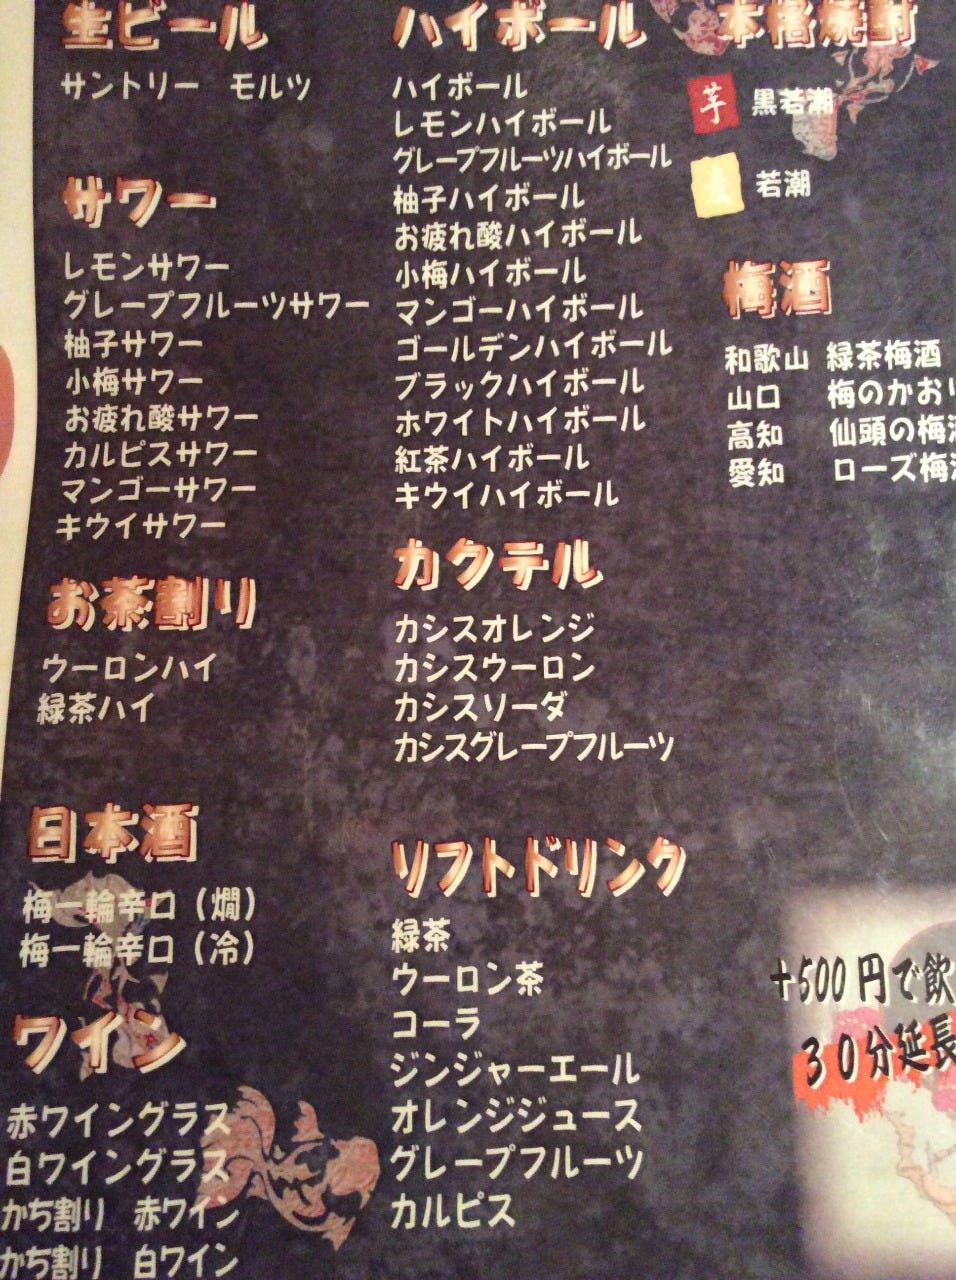 生ビール
サントリー モルツ
サワー
レモンサワー
グレープフルーツサワー
柚子サワー
小梅サワー
お疲れ酸サワー
カルピスサワー
マンゴーサワー
キウイサワー
お茶割り
ウーロンハイ
緑茶ハイ
日本酒
梅一輪辛口（燗）
梅一輪辛口（冷）
ワイン
赤ワイングラス
白ワイングラス
かち割り 赤ワイン
かち割り 白ワイン
ハイボール
ハイボール
レモンハイボール
グレープフルーツハイボール
柚子ハイボール
お疲れ酸ハイボール
小梅ハイボール
マンゴーハイボール
ゴールデンハイボール
ブラックハイボール
ホワイトハイボール
紅茶ハイボール
キウイハイボール
カクテル
カシスオレンジ
カシスウーロン
カシスソーダ
カシスグレープフルーツ
ソフトドリンク
緑茶
ウーロン茶
コーラ
ジンジャーエール
オレンジジュース
グレープフルーツ
カルピス
本格焼酎
芋 黒若潮
若潮
梅酒
和歌山 緑茶梅酒
山口 梅のかおり
高知 仙頭の梅酒
愛知 ローズ梅酒
+500円で飲
30分延長